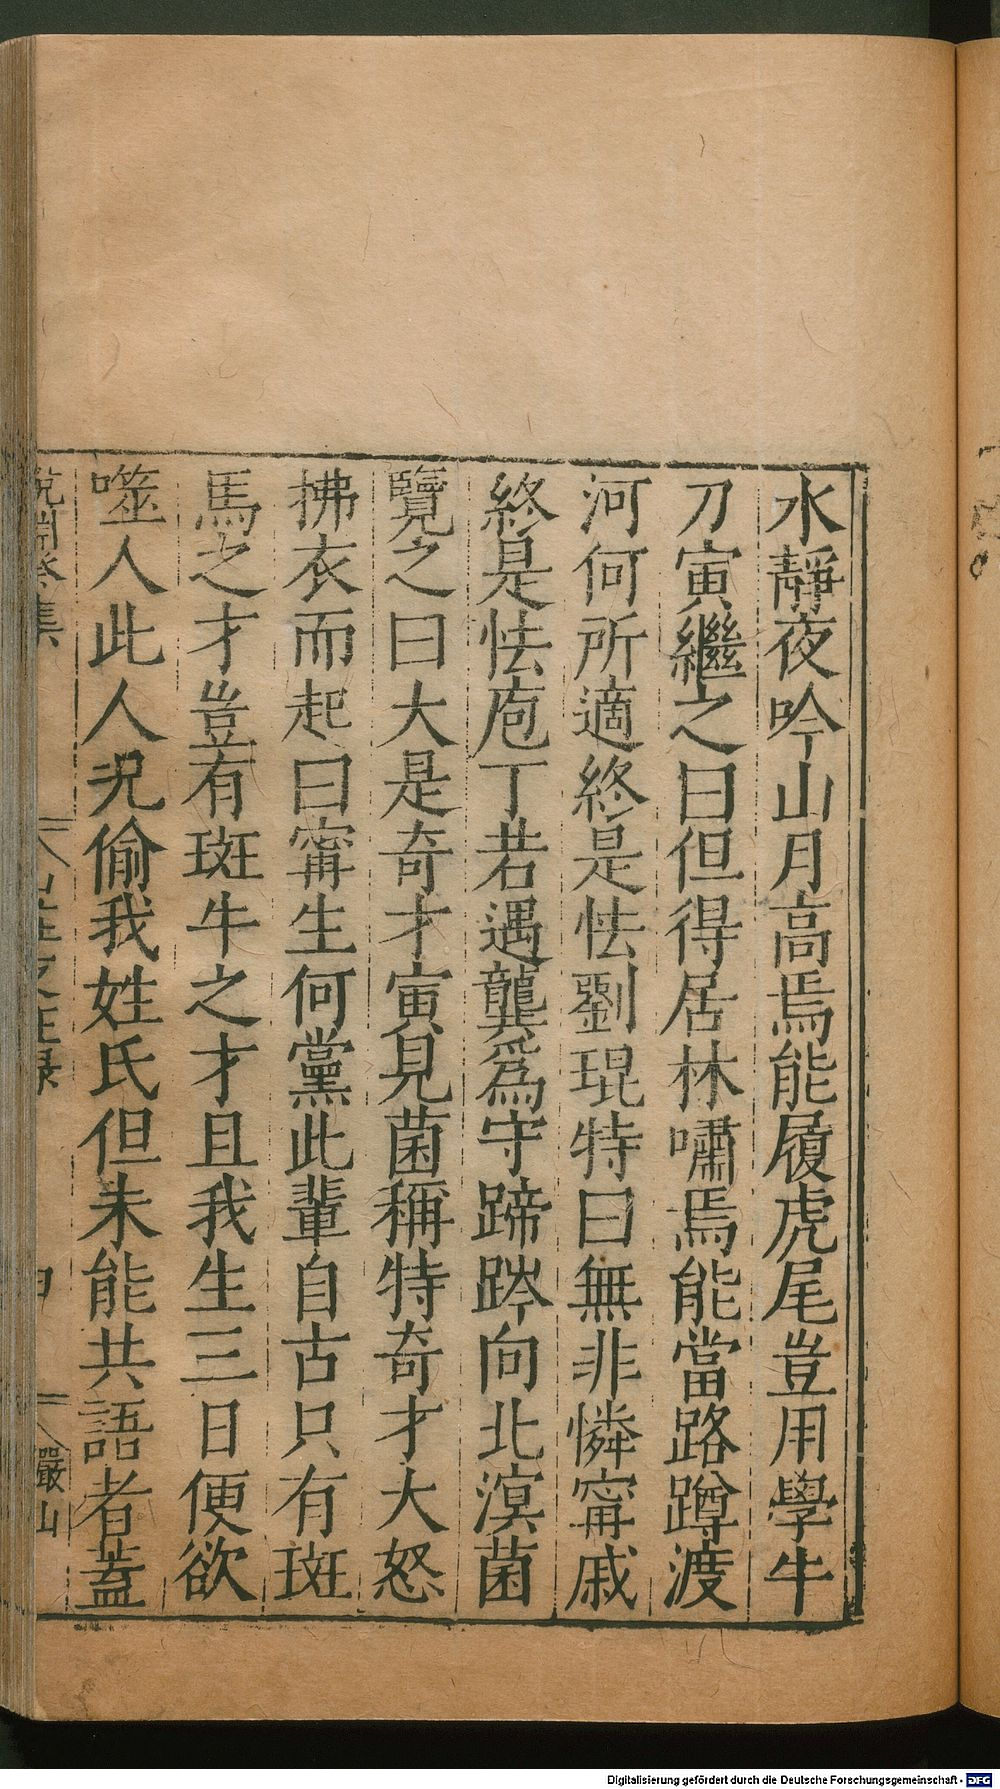 水靜夜吟山月高焉能履虎尾豈用學牛
刀寅繼之曰但得居林嘯焉能當路蹲渡
河何所適終是怯劉琨特曰無非憐甯戚
終是怯庖丁若遇龔爲守蹄跧向北溟菌
覽之曰大是奇才寅見菌稱特奇才大怒
拂衣而起曰甯生何黨此輩自古只有班
馬之才豈有斑牛之才且我生三日便欲
噬人此人況偷我姓氏但未能共語者蓋
說淵癸集
嚴山
Digitalisierung gefördert durch die Deutsche Forschungsgemeinschaft - DFG